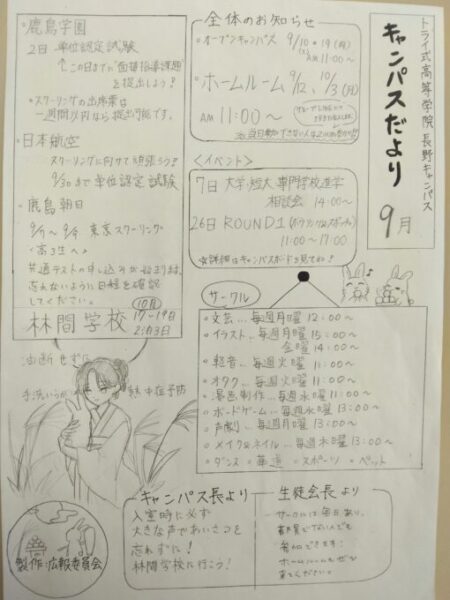 トライ式高等学院 長野キャンパス
キャンパスだより
9月
全体のお知らせ
・オープンキャンパス 9/10・19(月)
AM11:00〜
・ホームルーム 9/12、10/3(月)
AM 11:00〜
<イベント>
7日 大学・短大・専門学校進学
相談会 14:00〜
26日 ROUND1(ボウリング&スポッチャ)
11:00〜17:00
☆詳細はキャンパスボードを見てね!
サークル
・文芸…毎週月曜 12:00〜
・イラスト…毎週月曜 15:00〜
金曜 14:00〜
・軽音…毎週火曜 11:00〜
・オタク…毎週火曜 11:00〜
・景色制作…毎週水曜 11:00〜
・ボードゲーム…毎週水曜 13:00〜
・声劇…毎週月曜 13:00〜
・メイク&ネイル…毎週水曜 13:00〜
・ダンス ・華道 ・スポーツ ・ペット
・鹿島学園
2日 単位認定試験
↑この日までに"面接指導課題"
を提出しよう!
・スクーリングの出席票は
一週間以内なら提出可能です。
・日本航空
スクーリングに向けて頑張ろう!
9/30まで単位認定試験
・鹿島朝日
東京スクーリング
<高3生へ>
共通テストの申し込みが始まります。
忘れないように日程を確認
してください。
林間学校 (10月)
17〜19日
2泊3日
油断せずに
手洗いうがい
熱中症予防
キャンパス長より
入室時に必ず
大きな声であいさつを
忘れずに!
林間学校に行こう!
生徒会長より
サークルは毎日あり、
部員でない人でも
参加できます!
ホームルームもぜひ
来てください。
製作:広報委員会